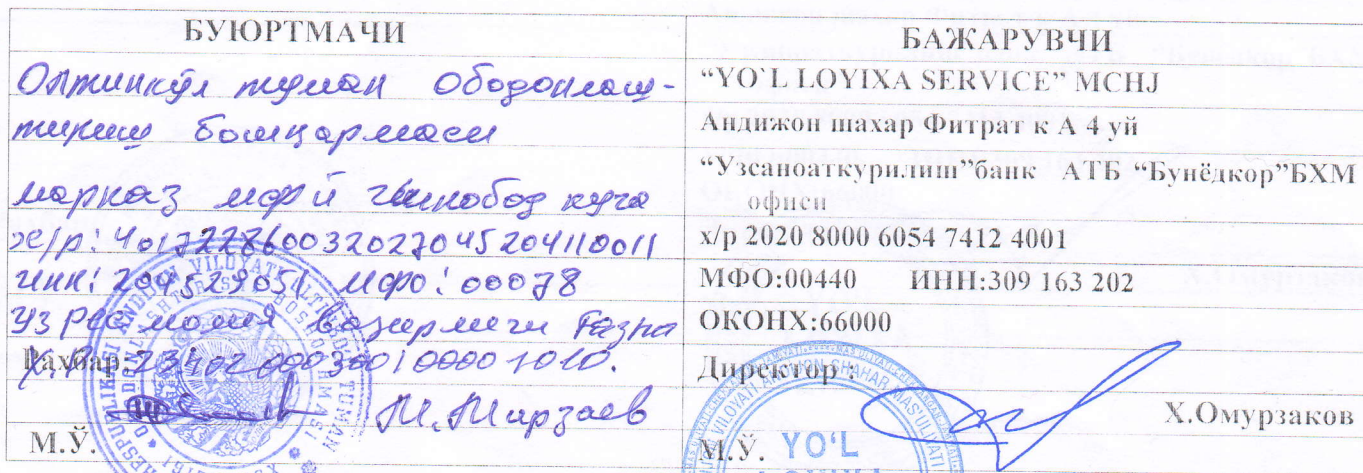 БУЮРТМАЧИ
Олтинкўл туман ободонлаш-
тириш бошқармаси
марказ мфй кўча
х/р: 401722860032027045204110011
инн: 204529051 мфо: 00078
Уз Рес молия вазирлиги Ғазна
Рахбар: 23402000300100001010.
М.Мирзаев
М.Ў.
БАЖАРУВЧИ
“YO`L LOYIXA SERVICE” MCHJ
Андижон шахар Фитрат к А 4 уй
“Узсаноаткурилиш”банк АТБ “Бунёдкор”БХМ
офиси
х/р 2020 8000 6054 7412 4001
МФО:00440 ИНН:309 163 202
ОКОНХ:66000
Директор :
Х.Омурзаков
М.Ў.
YO‘L